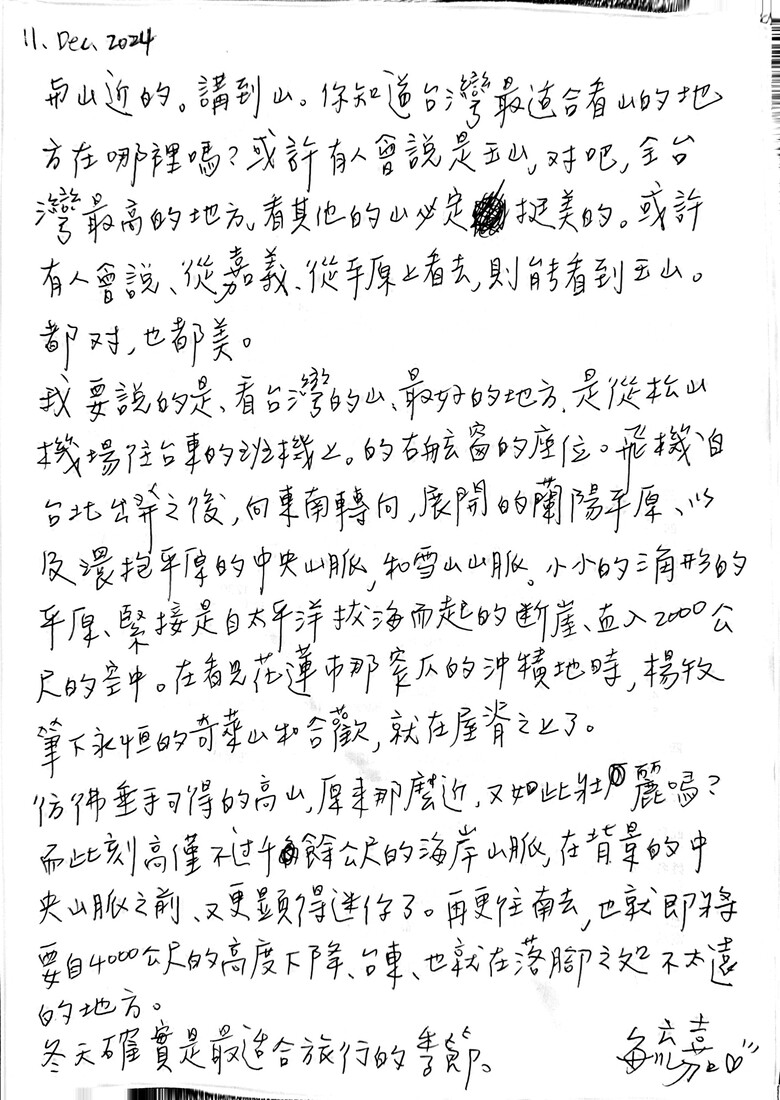 11. Dec. 2024
与山近的。講到山。你知道台灣最适合看山的地
方在哪裡嗎？或許有人會說是玉山，对吧，全台
灣最高的地方，看其他的山必定挺美的。或許
有人會說、從嘉義、從平原上看去，則能看到玉山。
都对，也都美。
我要說的是、看台灣的山、最好的地方，是從松山
機場往台東的班機上。的右舷窗的座位。飛機自
台北出發之後，向東南轉向，展開的蘭陽平原、以
及還抱平原的中央山脈，和雪山山脈。小小的三角形的
平原、緊接是自太平洋拔海而起的断崖、直入2000公
尺的空中。在看見花蓮市那窄瓜的沖積地時，楊牧
筆下永恒的奇萊山和合歡，就在屋脊之上了。
彷彿垂手可得的高山，原來那麼近，又如此壯麗嗎？
而此刻高僅不过千餘公尺的海岸山脈，在背景的中
央山脈之前、又更顯得迷你了。再更往南去，也就即將
要自4000公尺的高度下降、台東、也就在落腳之处不太遠
的地方。
冬天確實是最适合旅行的季節。